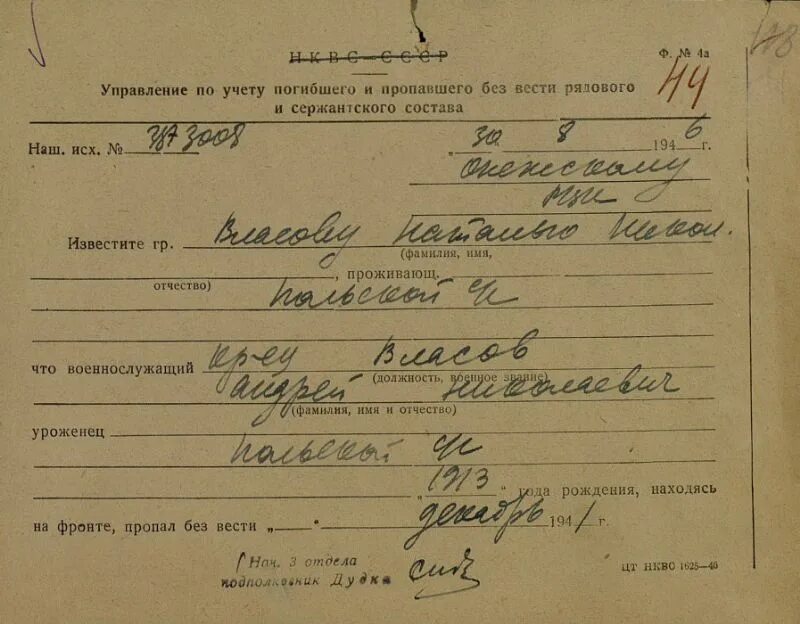 НКВС—СССР
Ф. № 4а
Управление по учету погибшего и пропавшего без вести рядового
и сержантского состава
44
Наш. исх. № 3008
„30 8 1946 г.
Онежскому
Известите гр. Власову Наталью Никол.
(фамилия, имя,
отчество)
, проживающ.
Польской
что военнослужащий кр-ец Власов
(должность, военное звание)
Андрей Николаевич
(фамилия, имя и отчество)
уроженец
Польской
„1913" года рождения, находясь
на фронте, пропал без вести „—" декабрь 1941 г.
Нач. 3 отдела
подполковник Дудка
ЦТ НКВС 1625—46